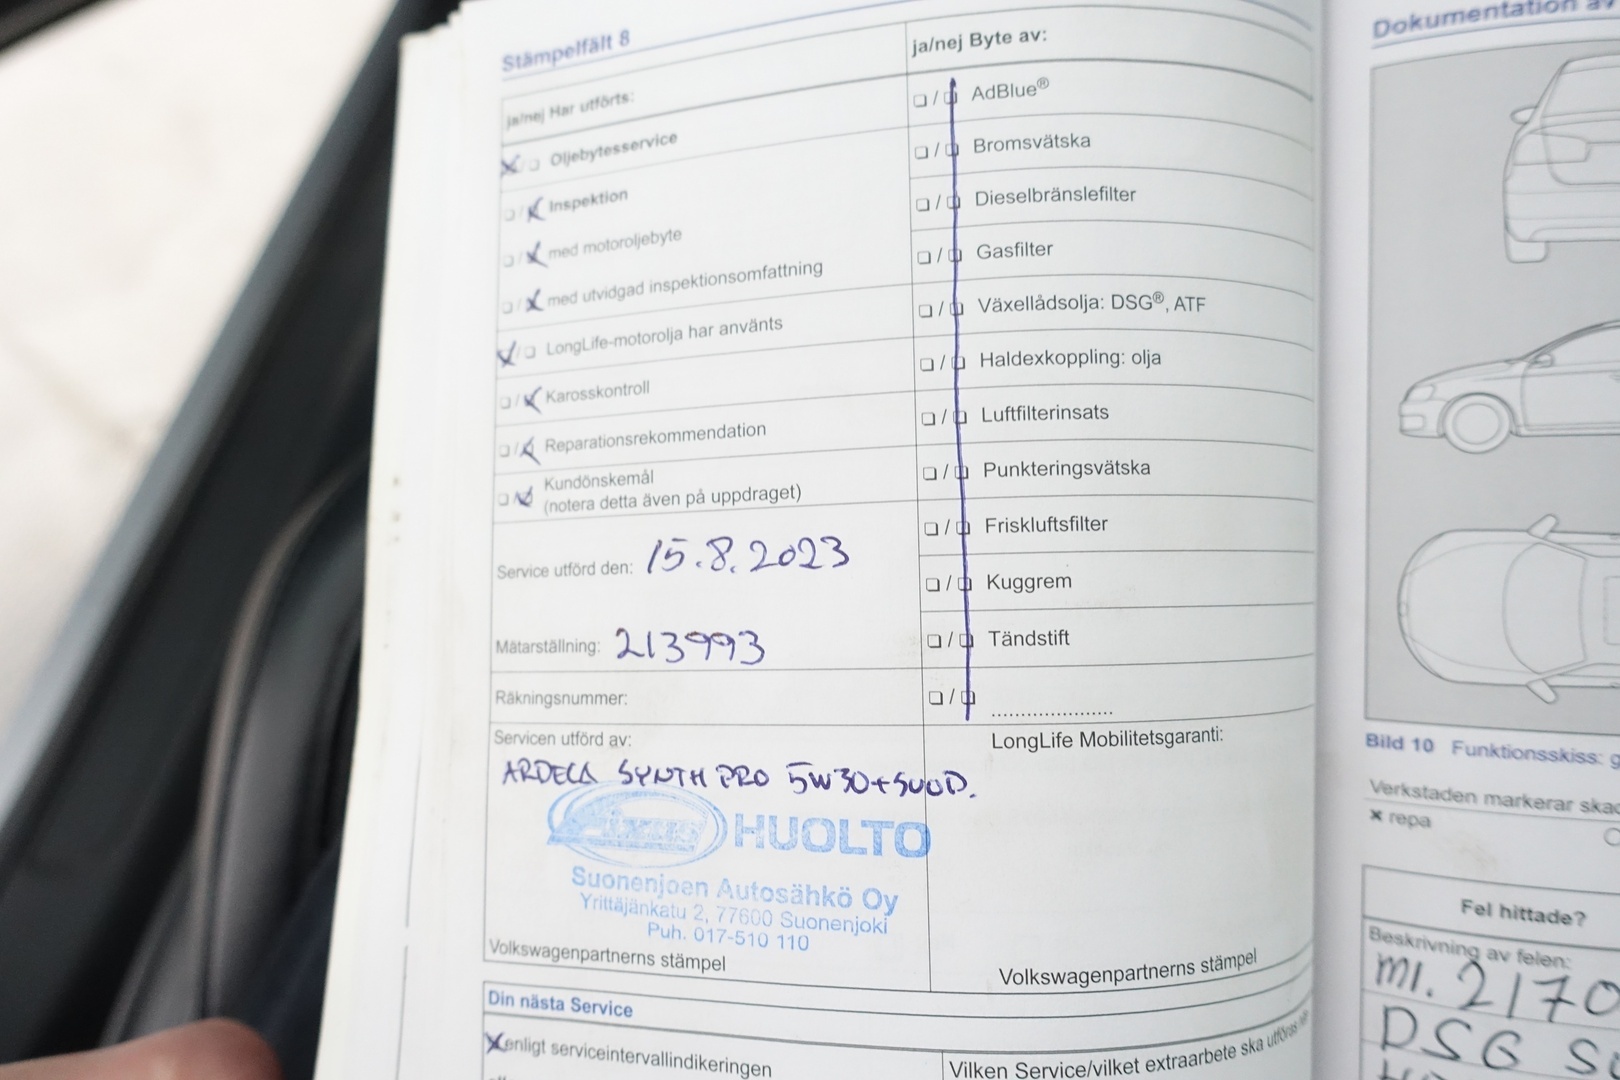 Stämpelfält 8
ja/nej Har utförts:
Oljebytesservice
Inspektion
med motoroljebyte
med utvidgad inspektionsomfattning
LongLife-motorolja har använts
Karosskontroll
Reparationsrekommendation
Kundönskemål
(notera detta även på uppdraget)
Service utförd den: 15.8.2023
Mätarställning: 213993
Räkningsnummer:
Servicen utförd av:
ARDECA SYNTH PRO 5W30+500D.
Fixus HUOLTO
Suonenjoen Autosähkö Oy
Yrittäjänkatu 2, 77600 Suonenjoki
Puh. 017-510 110
Volkswagenpartnerns stämpel
ja/nej Byte av:
AdBlue®
Bromsvätska
Dieselbränslefilter
Gasfilter
Växellådsolja: DSG®, ATF
Haldexkoppling: olja
Luftfilterinsats
Punkteringsvätska
Friskluftsfilter
Kuggrem
Tändstift
LongLife Mobilitetsgaranti:
Volkswagenpartnerns stämpel
Din nästa Service
enligt serviceintervallindikeringen
Vilken Service/vilket extraarbete ska utföras
Dokumentation av
Bild 10 Funktionsskiss:
Verkstaden markerar
× repa
Fel hittade?
Beskrivning av felen:
ml. 2170
DSG